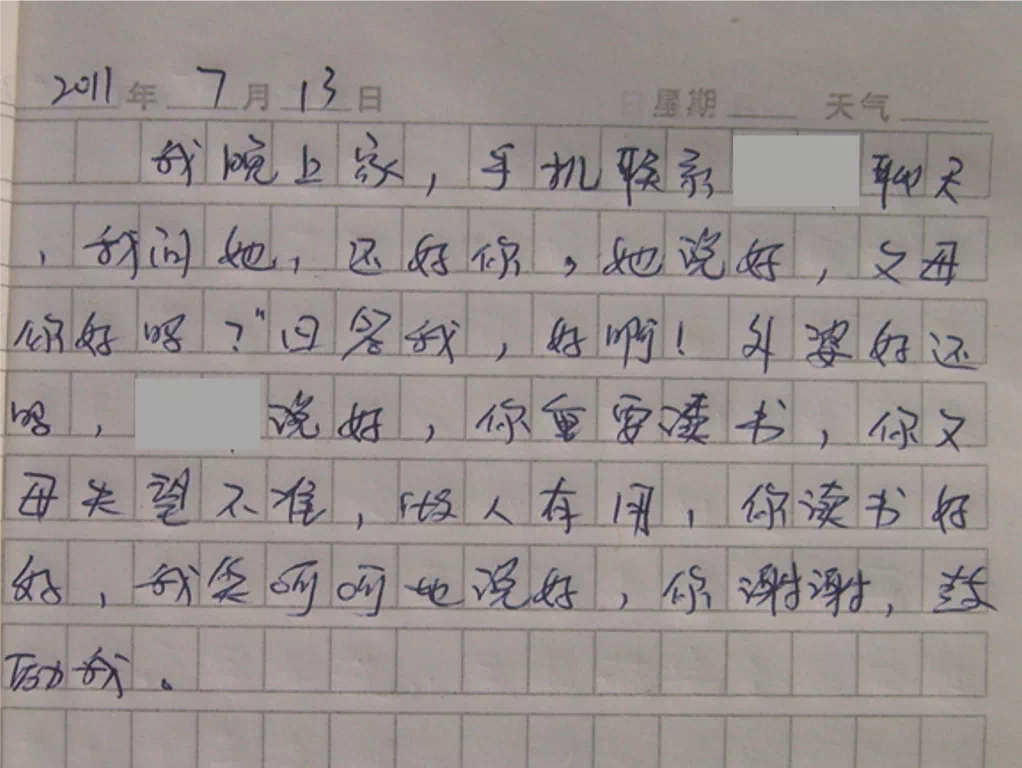 2011年 7月 13日 日星期 天气
我晚上家,手机联系 聊天
,我问她,还好你,她说好,父母
你好吗?"回答我,好啊!外婆好还
吗, 说好,你重要读书,你父
母失望不准,做人有用,你读书好
好,我笑呵呵地说好,你谢谢,鼓
励我。